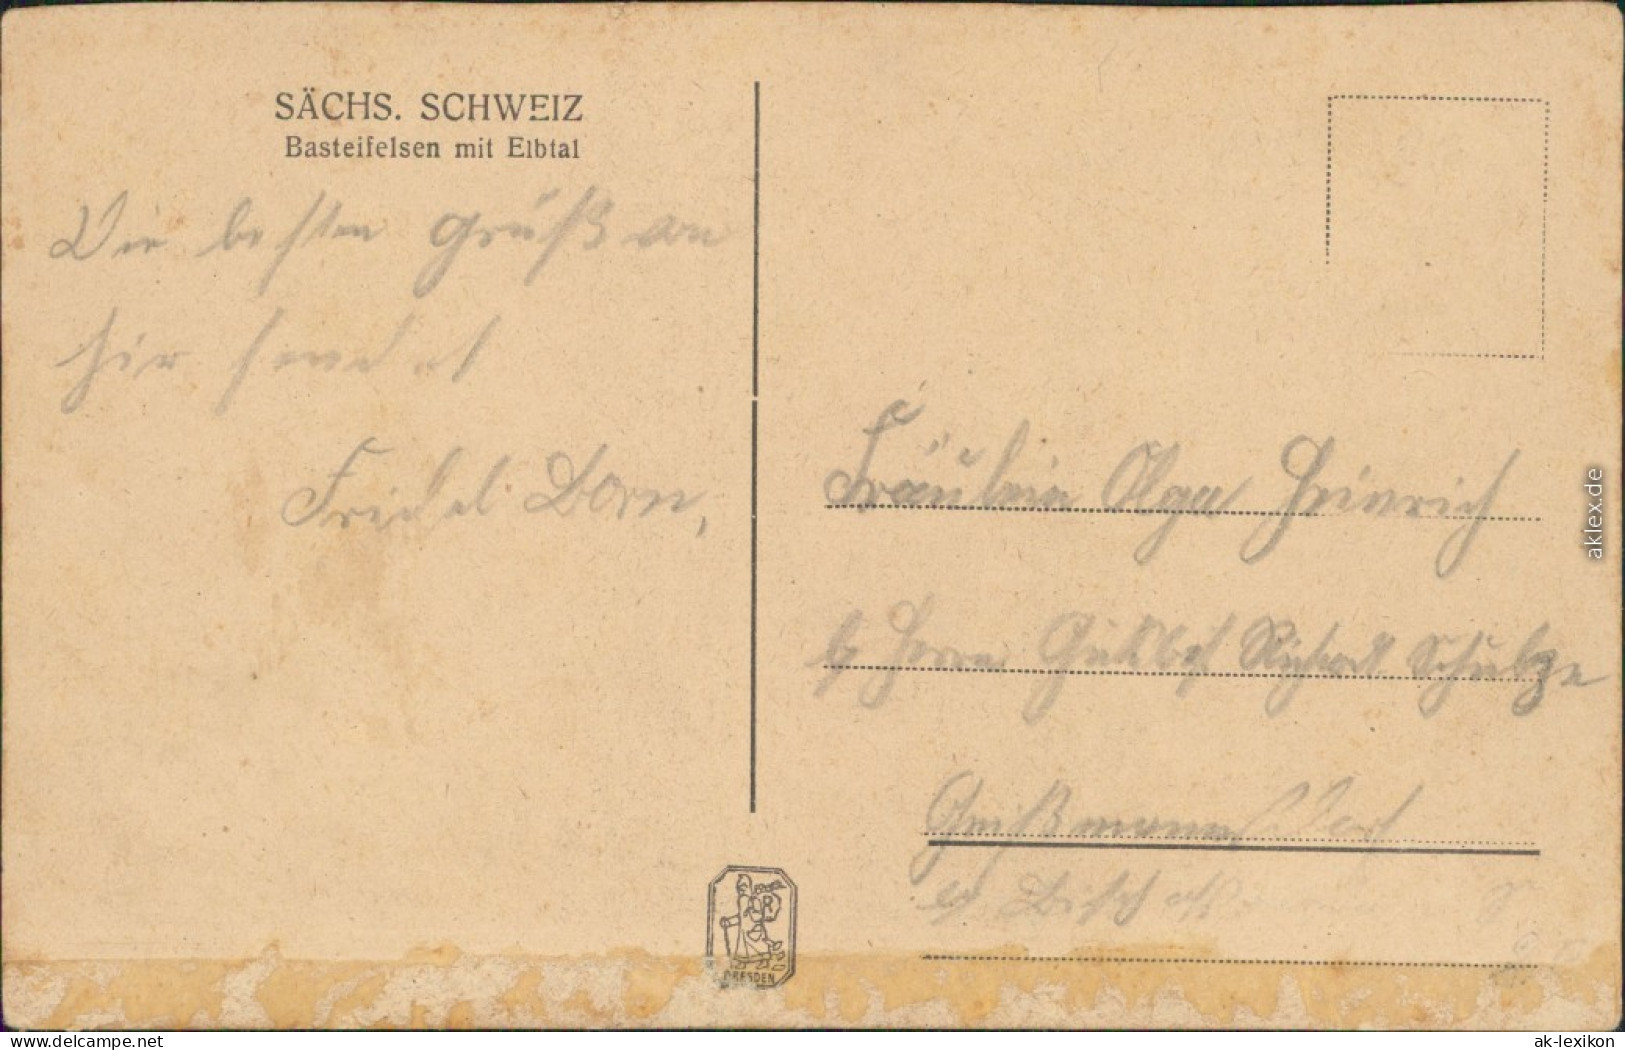 SÄCHS. SCHWEIZ
Basteifelsen mit Elbtal
Die besten Grüß an
hir sendet
Friedel Dorn,
Fräulein Olga Heinrich
b Herrn Gutsbes Richard Schulze
Geißmannsdorf
b Bischofs
R
DRESDEN
aklex.de
www.ak-ansichtskarten.de
ak-lexikon